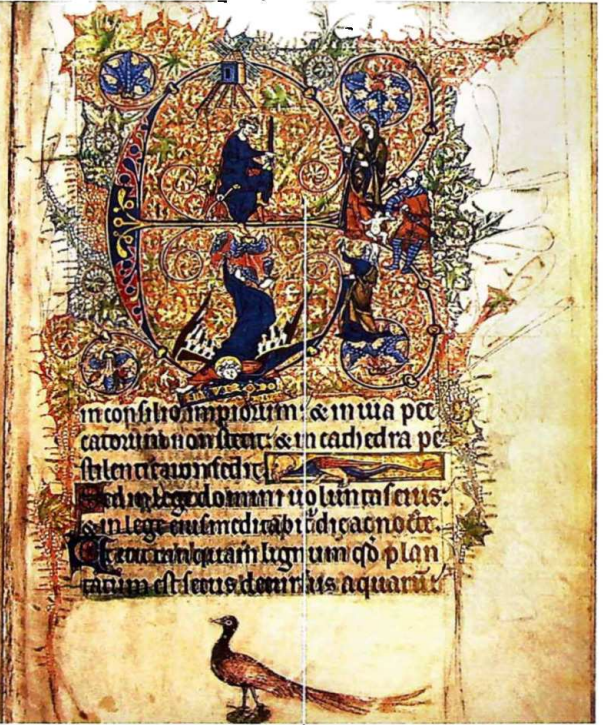 E
in consilio impiorum: & in uia pec
catorum non stetit: & in cathedra pe
stilentie non sedit
Sed in lege domini uoluntas eius
& in lege eius meditabit᷑ die ac nocte.
Et erit tanquam lignum qd̄ plan
tatum est secus decursus aquarū